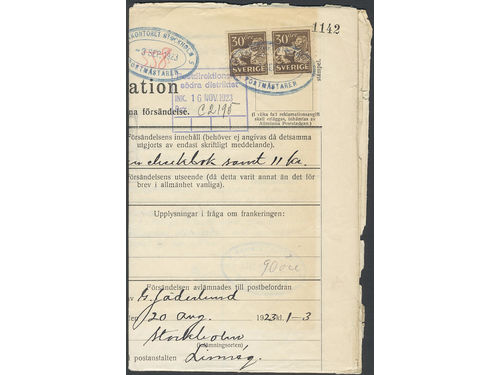 1142
KONTORET STOCKHOLM 5
-3 SEP. 1923
POSTMÄSTAREN
30 30
SVERIGE SVERIGE
POSTMÄSTAREN
stämpel.
Postdirektionen
södra distriktet
INK. 16 NOV. 1923
C2195
ation
na försändelse.
(I vilka fall reklamationsavgift
skall erläggas, inhämtas av
Allmänna Poststadgan.)
Försändelsens innehåll (behöver ej angivas då detsamma
utgjorts av endast skriftligt meddelande).
checkbok samt 11 ka.
Försändelsens utseende (då detta varit annat än det för
brev i allmänhet vanliga).
Upplysningar i fråga om frankeringen:
90 öre
Försändelsen avlämnades till postbefordran
av G. Söderlund
den 20 aug. 1923 kl. 1-3
Stockholm
(Inlämningsorten)
postanstalten